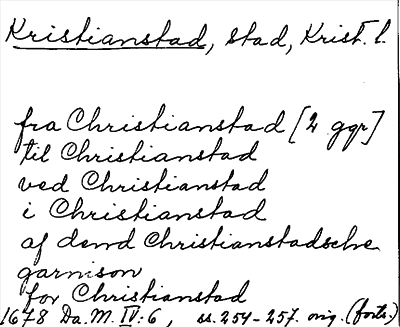 Kristianstad, stad, Krist. l.
fra Christianstad [2 ggr]
til Christianstad
ved Christianstad
i Christianstad
af dend Christianstadsche
garnison
for Christianstad
1678 Da. M. IV:6, ss. 254-257. orig. (forts.)